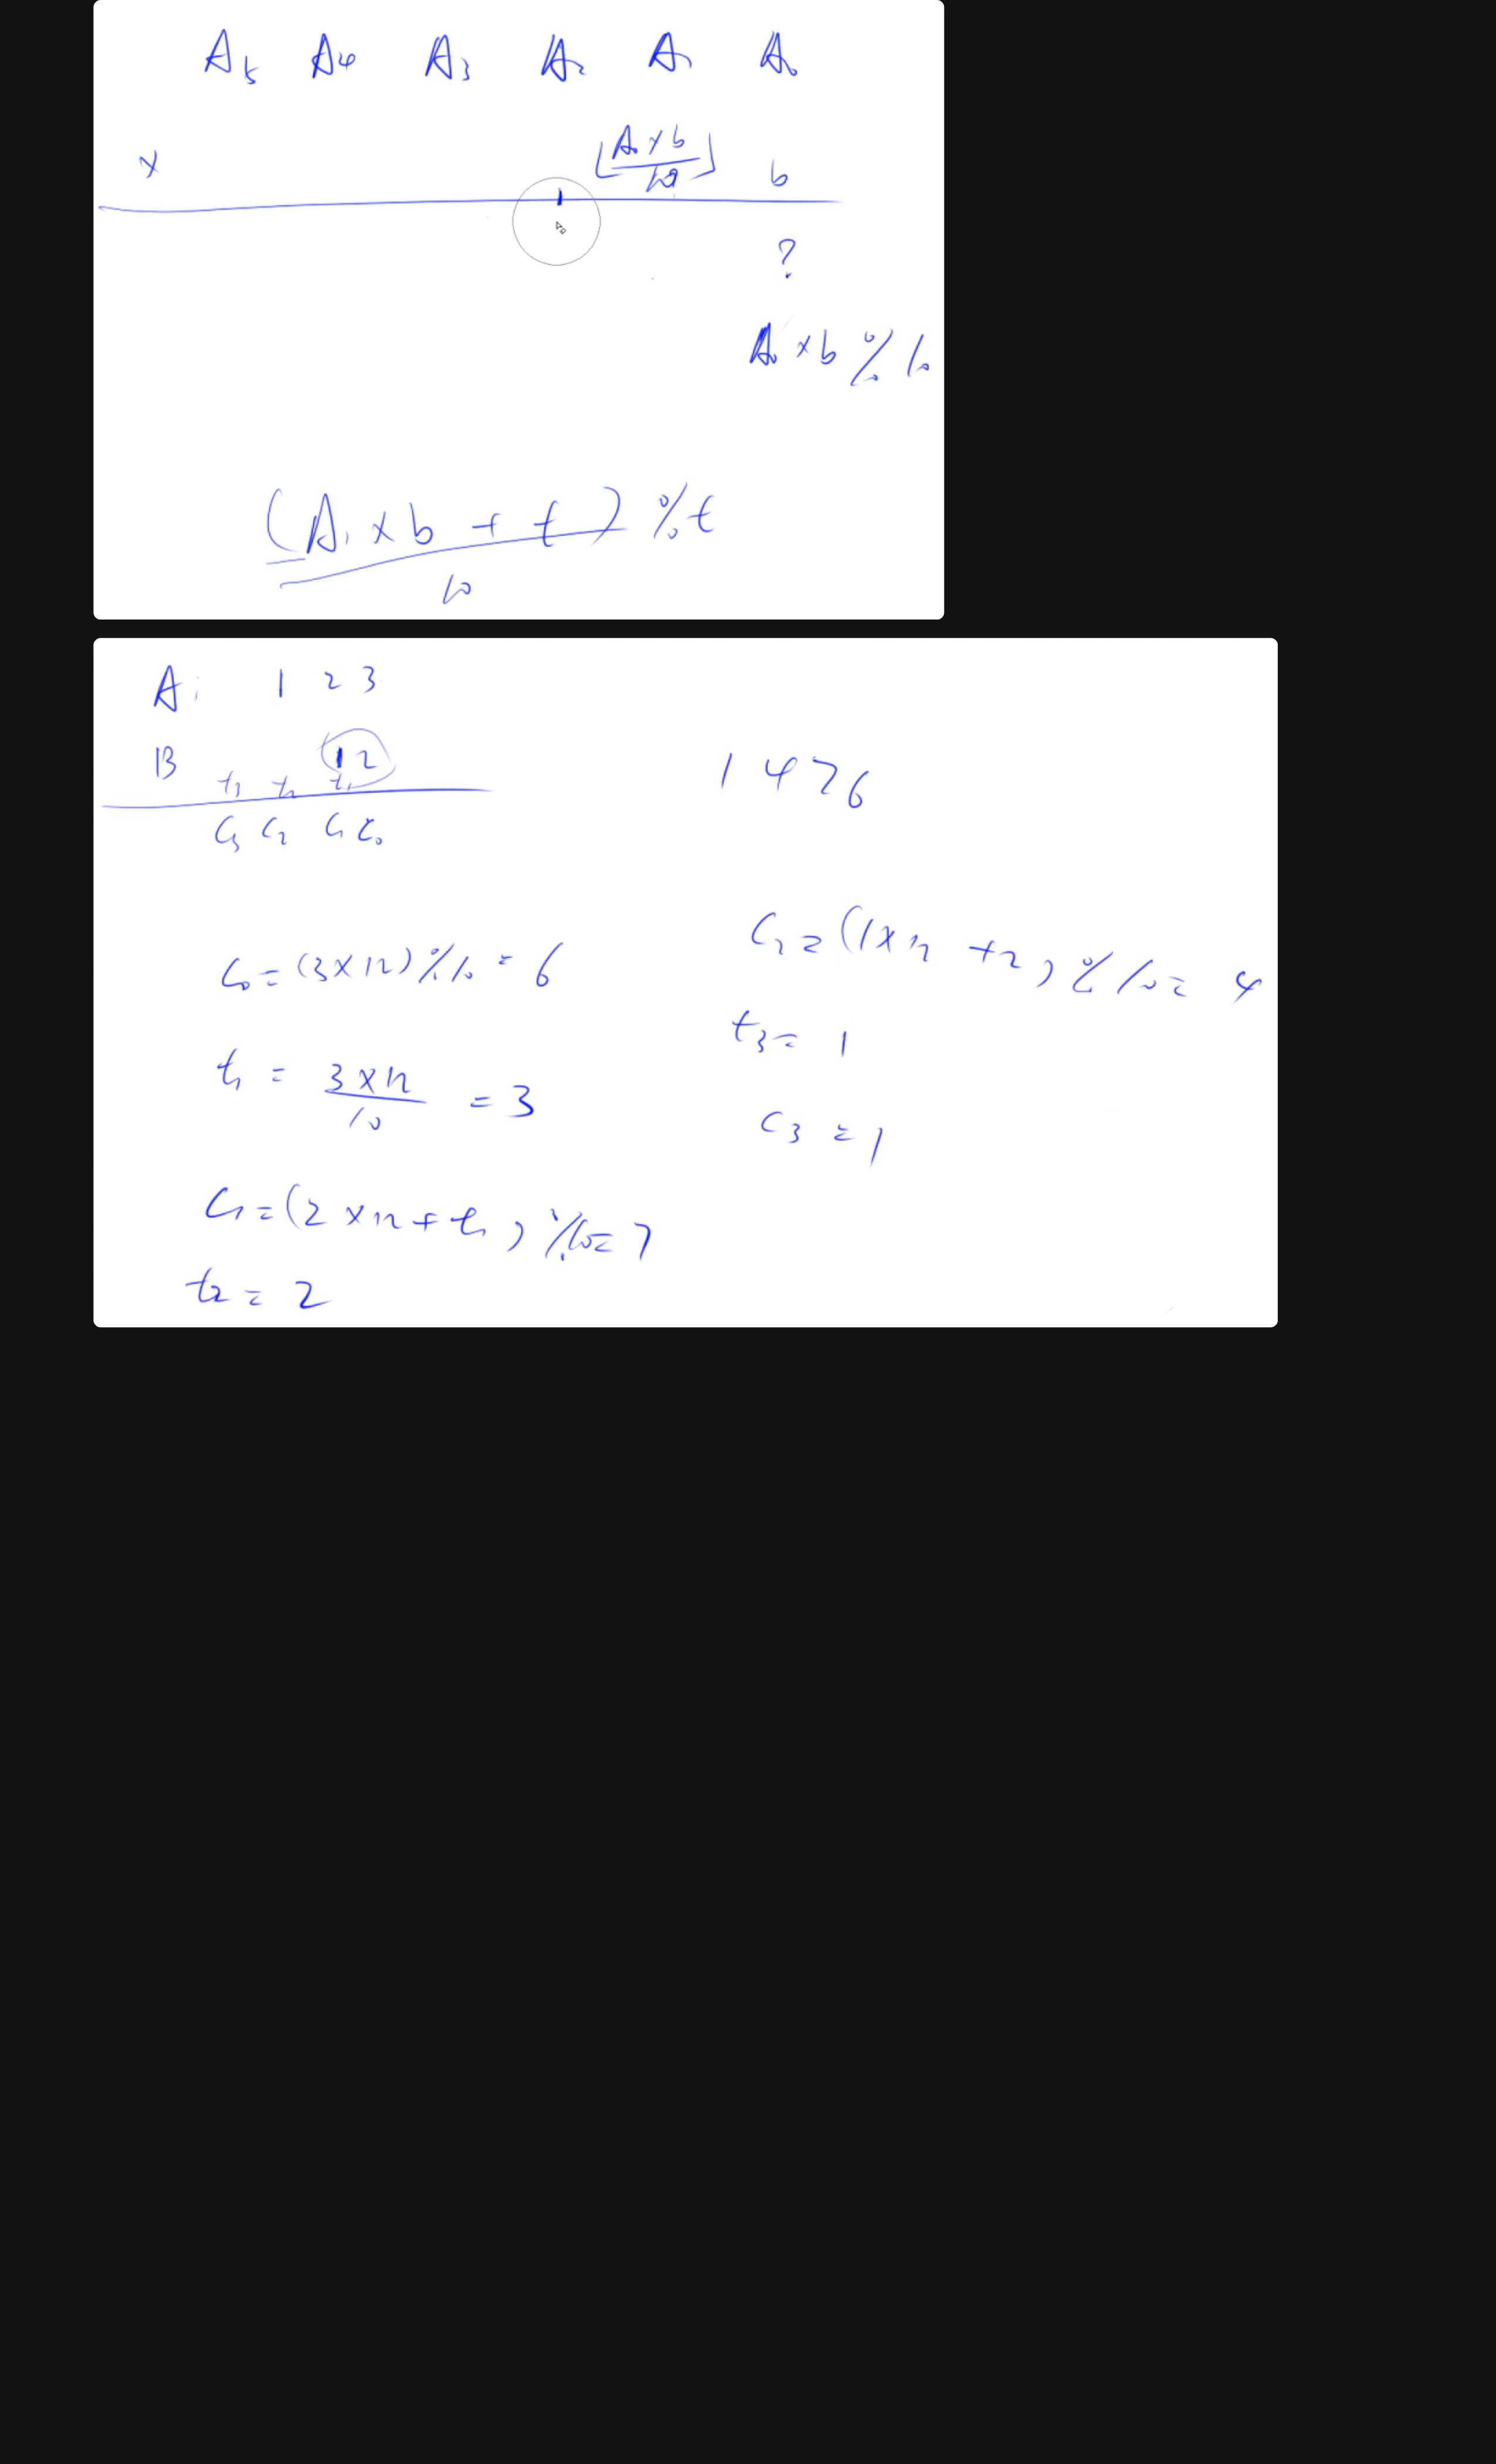 A₅ A₄ A₃ A₂ A₁ A₀
× ⌊A₀×b/10⌋ b
?
A₀×b%10
(A₁×b+t)%t
10
A: 1 2 3
B 12
t₃ t₂ t₁
C₃ C₂ C₁ C₀
1476
C₀=(3×12)%10=6
t₁=3×12/10=3
C₁=(2×12+t₁)%10=7
t₂=2
C₂=(1×12+2)%10=4
t₃=1
C₃=1